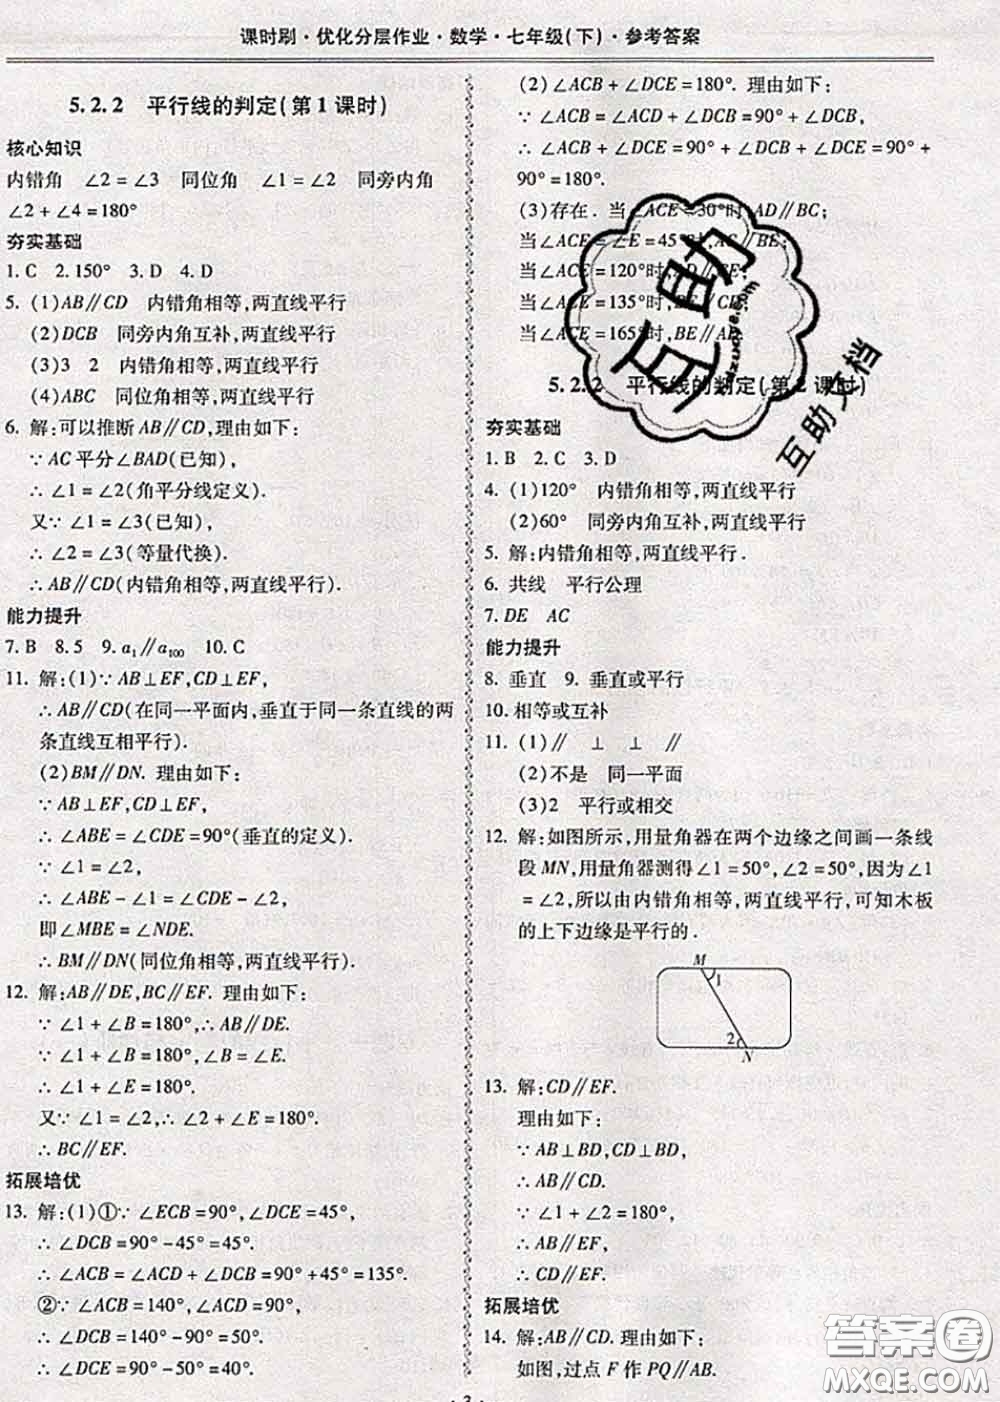 课时刷·优化分层作业·数学·七年级(下)·参考答案
5.2.2 平行线的判定(第1课时)
核心知识
内错角 ∠2=∠3 同位角 ∠1=∠2 同旁内角
∠2+∠4=180°
夯实基础
1. C 2. 150° 3. D 4. D
5. (1)AB∥CD 内错角相等,两直线平行
(2)DCB 同旁内角互补,两直线平行
(3)3 2 内错角相等,两直线平行
(4)ABC 同位角相等,两直线平行
6. 解:可以推断AB∥CD,理由如下:
∵AC平分∠BAD(已知),
∴∠1=∠2(角平分线定义).
又∵∠1=∠3(已知),
∴∠2=∠3(等量代换).
∴AB∥CD(内错角相等,两直线平行).
能力提升
7. B 8. 5 9. a₁∥a₁₀₀ 10. C
11. 解:(1)∵AB⊥EF,CD⊥EF,
∴AB∥CD(在同一平面内,垂直于同一条直线的两
条直线互相平行).
(2)BM∥DN. 理由如下:
∵AB⊥EF,CD⊥EF,
∴∠ABE=∠CDE=90°(垂直的定义).
∵∠1=∠2,
∴∠ABE-∠1=∠CDE-∠2,
即∠MBE=∠NDE.
∴BM∥DN(同位角相等,两直线平行).
12. 解:AB∥DE,BC∥EF. 理由如下:
∵∠1+∠B=180°,∴AB∥DE.
∵∠1+∠B=180°,∠B=∠E.
∴∠1+∠E=180°.
又∵∠1=∠2,∴∠2+∠E=180°.
∴BC∥EF.
拓展培优
13. 解:(1)①∵∠ECB=90°,∠DCE=45°,
∴∠DCB=90°-45°=45°.
∴∠ACB=∠ACD+∠DCB=90°+45°=135°.
②∵∠ACB=140°,∠ACD=90°,
∴∠DCB=140°-90°=50°.
∴∠DCE=90°-50°=40°.
(2)∠ACB+∠DCE=180°. 理由如下:
∵∠ACB=∠ACD+∠DCB=90°+∠DCB,
∴∠ACB+∠DCE=90°+∠DCB+∠DCE=90°+
90°=180°.
(3)存在. 当∠ACE=30°时,AD∥BC;
当∠ACE=∠E=45°时,AC∥BE;
当∠ACE=120°时,AD∥CE;
当∠ACE=135°时,BE∥CD;
当∠ACE=165°时,BE∥AD.
5.2.2 平行线的判定(第2课时)
夯实基础
1. B 2. C 3. D
4. (1)120° 内错角相等,两直线平行
(2)60° 同旁内角互补,两直线平行
5. 解:内错角相等,两直线平行.
6. 共线 平行公理
7. DE AC
能力提升
8. 垂直 9. 垂直或平行
10. 相等或互补
11. (1)∥ ⊥ ⊥ ∥
(2)不是 同一平面
(3)2 平行或相交
12. 解:如图所示,用量角器在两个边缘之间画一条线
段MN,用量角器测得∠1=50°,∠2=50°,因为∠1
=∠2,所以由内错角相等,两直线平行,可知木板
的上下边缘是平行的.
M
1
2
N
13. 解:CD∥EF.
理由如下:
∵AB⊥BD,CD⊥BD,
∴AB∥CD.
∵∠1=∠2,
∴AB∥EF,
∴CD∥EF.
拓展培优
14. 解:AB∥CD. 理由如下:
如图,过点F作PQ∥AB.
· 3 ·
互助
互助文档
答案圈
MXQE.COM